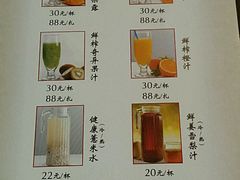 露
30元/杯
88元/扎
30元/杯
88元/扎
鲜榨奇异果汁
30元/杯
88元/扎
鲜榨橙汁
30元/杯
88元/扎
健康薏米水
(冷/热)
22元/杯
鲜姜雪梨汁
(冷/热)
20元/杯